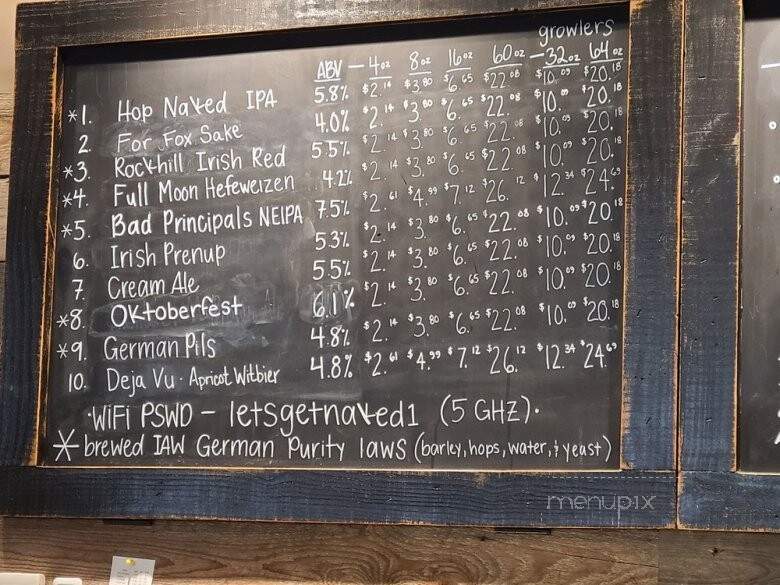 growlers
ABV - 4oz 8oz 16oz 60oz - 32oz 64oz
*1. Hop Naked IPA 5.8% $2.14 $3.80 $6.65 $22.08 $10.09 $20.18
2. For Fox Sake 4.0% $2.14 $3.80 $6.65 $22.08 $10.09 $20.18
*3. Rockhill Irish Red 5.5% $2.14 $3.80 $6.65 $22.08 $10.09 $20.18
*4. Full Moon Hefeweizen 4.2% $2.14 $3.80 $6.65 $22.08 $10.09 $20.18
*5. Bad Principals NEIPA 7.5% $2.61 $4.99 $7.12 $26.12 $12.34 $24.69
6. Irish Prenup 5.3% $2.14 $3.80 $6.65 $22.08 $10.09 $20.18
7. Cream Ale 5.5% $2.14 $3.80 $6.65 $22.08 $10.09 $20.18
*8. Oktoberfest 6.1% $2.14 $3.80 $6.65 $22.08 $10.09 $20.18
*9. German Pils 4.8% $2.14 $3.80 $6.65 $22.08 $10.09 $20.18
10. Deja Vu - Apricot Witbier 4.8% $2.61 $4.99 $7.12 $26.12 $12.34 $24.69
·WiFi PSWD - letsgetnaked1 (5 GHZ)·
* brewed IAW German Purity laws (barley, hops, water, & yeast)
menupix